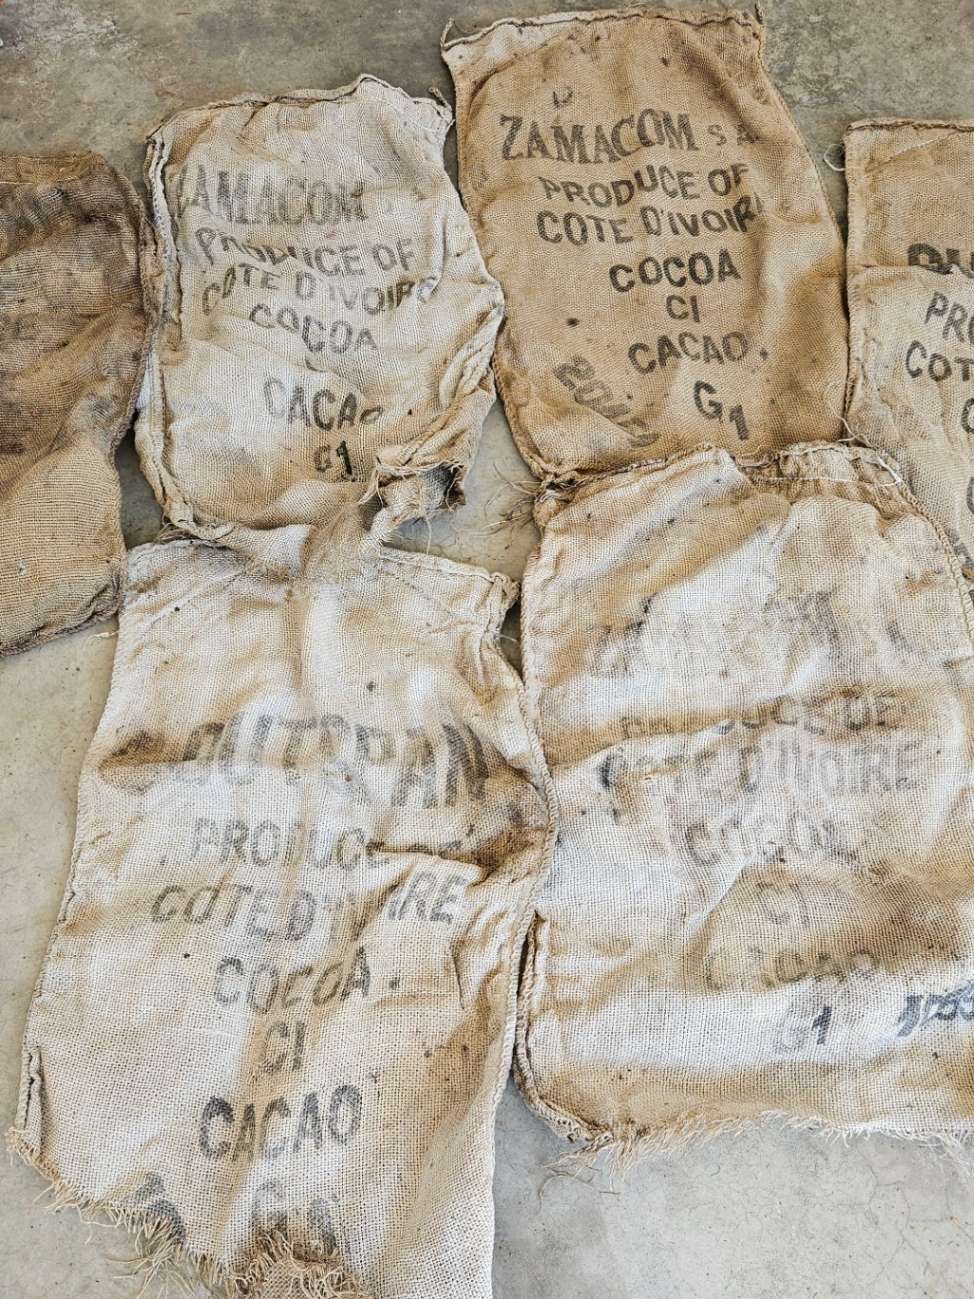 ZAMACOM
PRODUCE OF
COTE D'IVOIRE
COCOA
CACAO
G1
ZAMACOM S A
PRODUCE OF
COTE D'IVOIR
COCOA
CI
CACAO.
G1
PR
COT
OUTSPAN
PRODUCE
COTE D'IVOIRE
COCOA.
CI
CACAO
PRODUCE DE
COTE D'IVOIRE
COCOA
CI
CACAO
G1